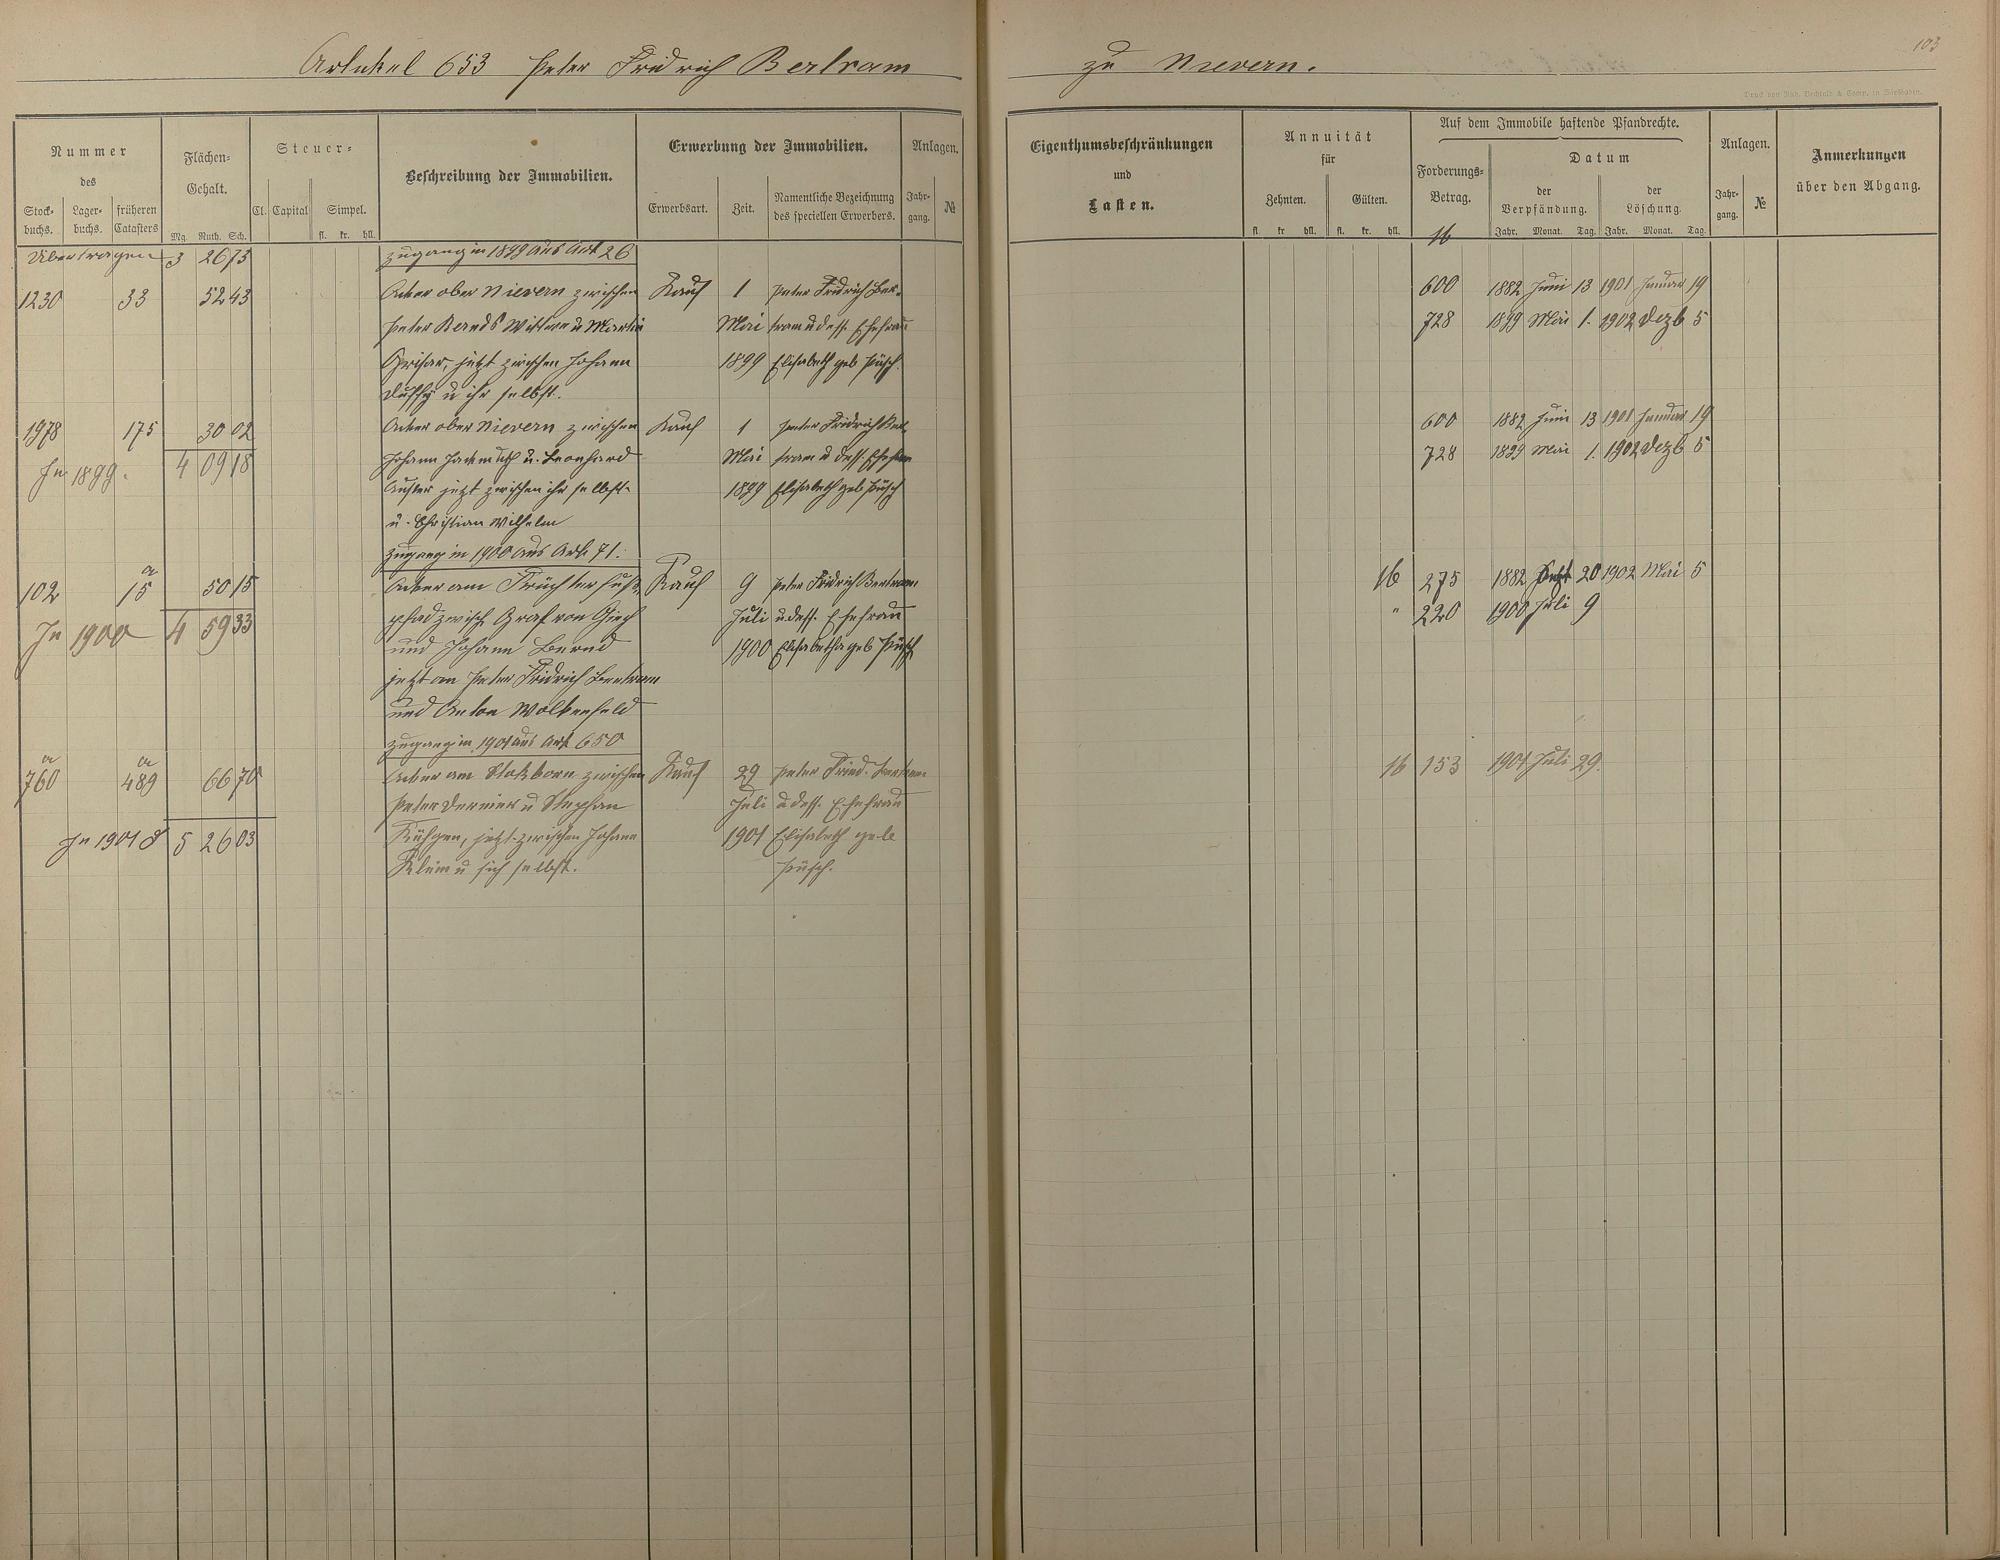 Artikel 653 Peter Fridrich Bertram zu Nievern.
103
Druck von Rud. Bechtold & Comp. in Wiesbaden.
Nummer des
Stockbuchs. Lagerbuchs. früheren Catasters
Flächen-Gehalt.
Mg. Ruth. Sch.
Steuer-
Cl. Capital Simpel.
fl. kr. hll.
Beschreibung der Immobilien.
Erwerbung der Immobilien.
Erwerbsart. Zeit. Namentliche Bezeichnung des speciellen Erwerbers.
Anlagen.
Jahrgang. №
Eigenthumsbeschränkungen
und
Lasten.
Annuität
für
Zehnten. Gülten.
fl. kr hll. fl. kr. hll.
Auf dem Immobile haftende Pfandrechte.
Forderungs-Betrag.
Datum
der Verpfändung. der Löschung.
Jahr. Monat. Tag. Jahr. Monat. Tag.
Anlagen.
Jahrgang. №
Anmerkungen
über den Abgang.
Übertragen 3 26 73 Zugang in 1899 aus Art 26
1230 33 52 43 Acker ober Nievern zwischen Kauf 1 Peter Fridrich Ber- 600 1882 Juni 13 1901 Januar 19
Peter Bernds Wittwe u Martin Mai tram u dess. Ehefrau 728 1899 Mai 1. 1902 Dezb 5
Grisar, jetzt zwischen Johann 1899 Elisabeth geb Püsch.
Duffy u ihr selbst.
1978 175 30 02 Acker ober Nievern zwischen Kauf 1 Peter Fridrich Ber- 600 1882 Juni 13 1901 Januar 19
In 1899. 4 09 18 Johann u. Leonhard Mai tram u dess. Ehefrau 728 1899 Mai 1. 1902 Dezb 5
jetzt zwischen ihr selbst 1899 Elisabeth geb Püsch
u. Christian Wilhelm
Zugang in 1900 aus Art. 71.
102 15 a 50 15 Acker am Früchter Fuß- Kauf 9 Peter Fridrich Bertram 275 1882 20 1902 Mai 5
In 1900 4 59 33 pfad zwisch. Graf von Giech Juli u dess. Ehefrau " 220 1900 Juli 9
und Johann Bernd 1900 Elisabetha geb Püsch
jetzt an Peter Fridrich Bertram
und Anton Wolkenfeld
Zugang in 1901 aus Art 650
760 a 489 a 66 70 Acker am Stokborn zwischen Kauf 29 Peter Fried. Bertram 153 1901 Juli 29.
Peter u Stephan Juli u dess. Ehefrau
In 1901 5 26 03 jetzt zwischen Johann 1901 Elisabeth geb
u sich selbst. Püsch.